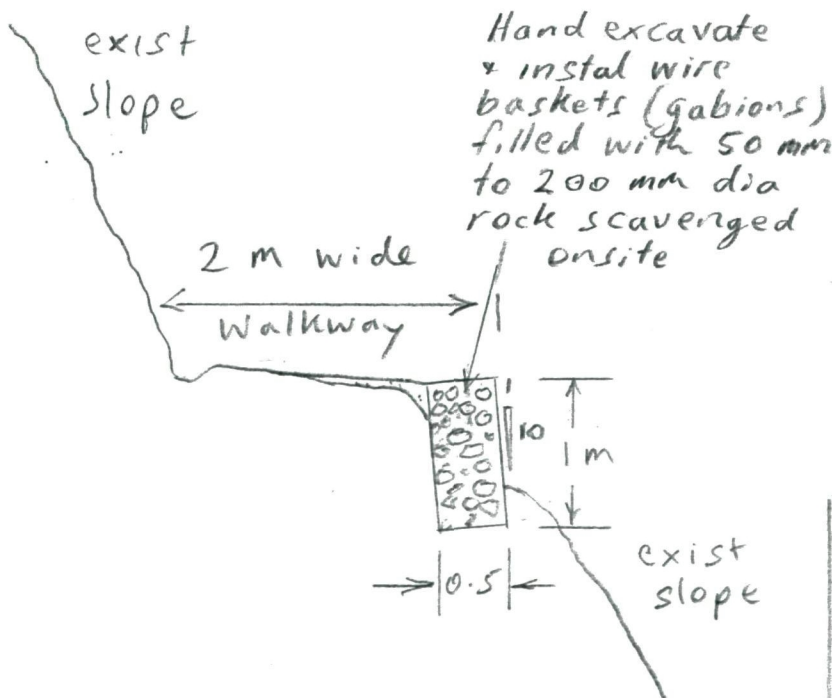 exist
slope
Hand excavate
& instal wire
baskets (gabions)
filled with 50 mm
to 200 mm dia
rock scavenged
onsite
2 m wide
Walkway
1
10
1 m
0.5
exist
slope